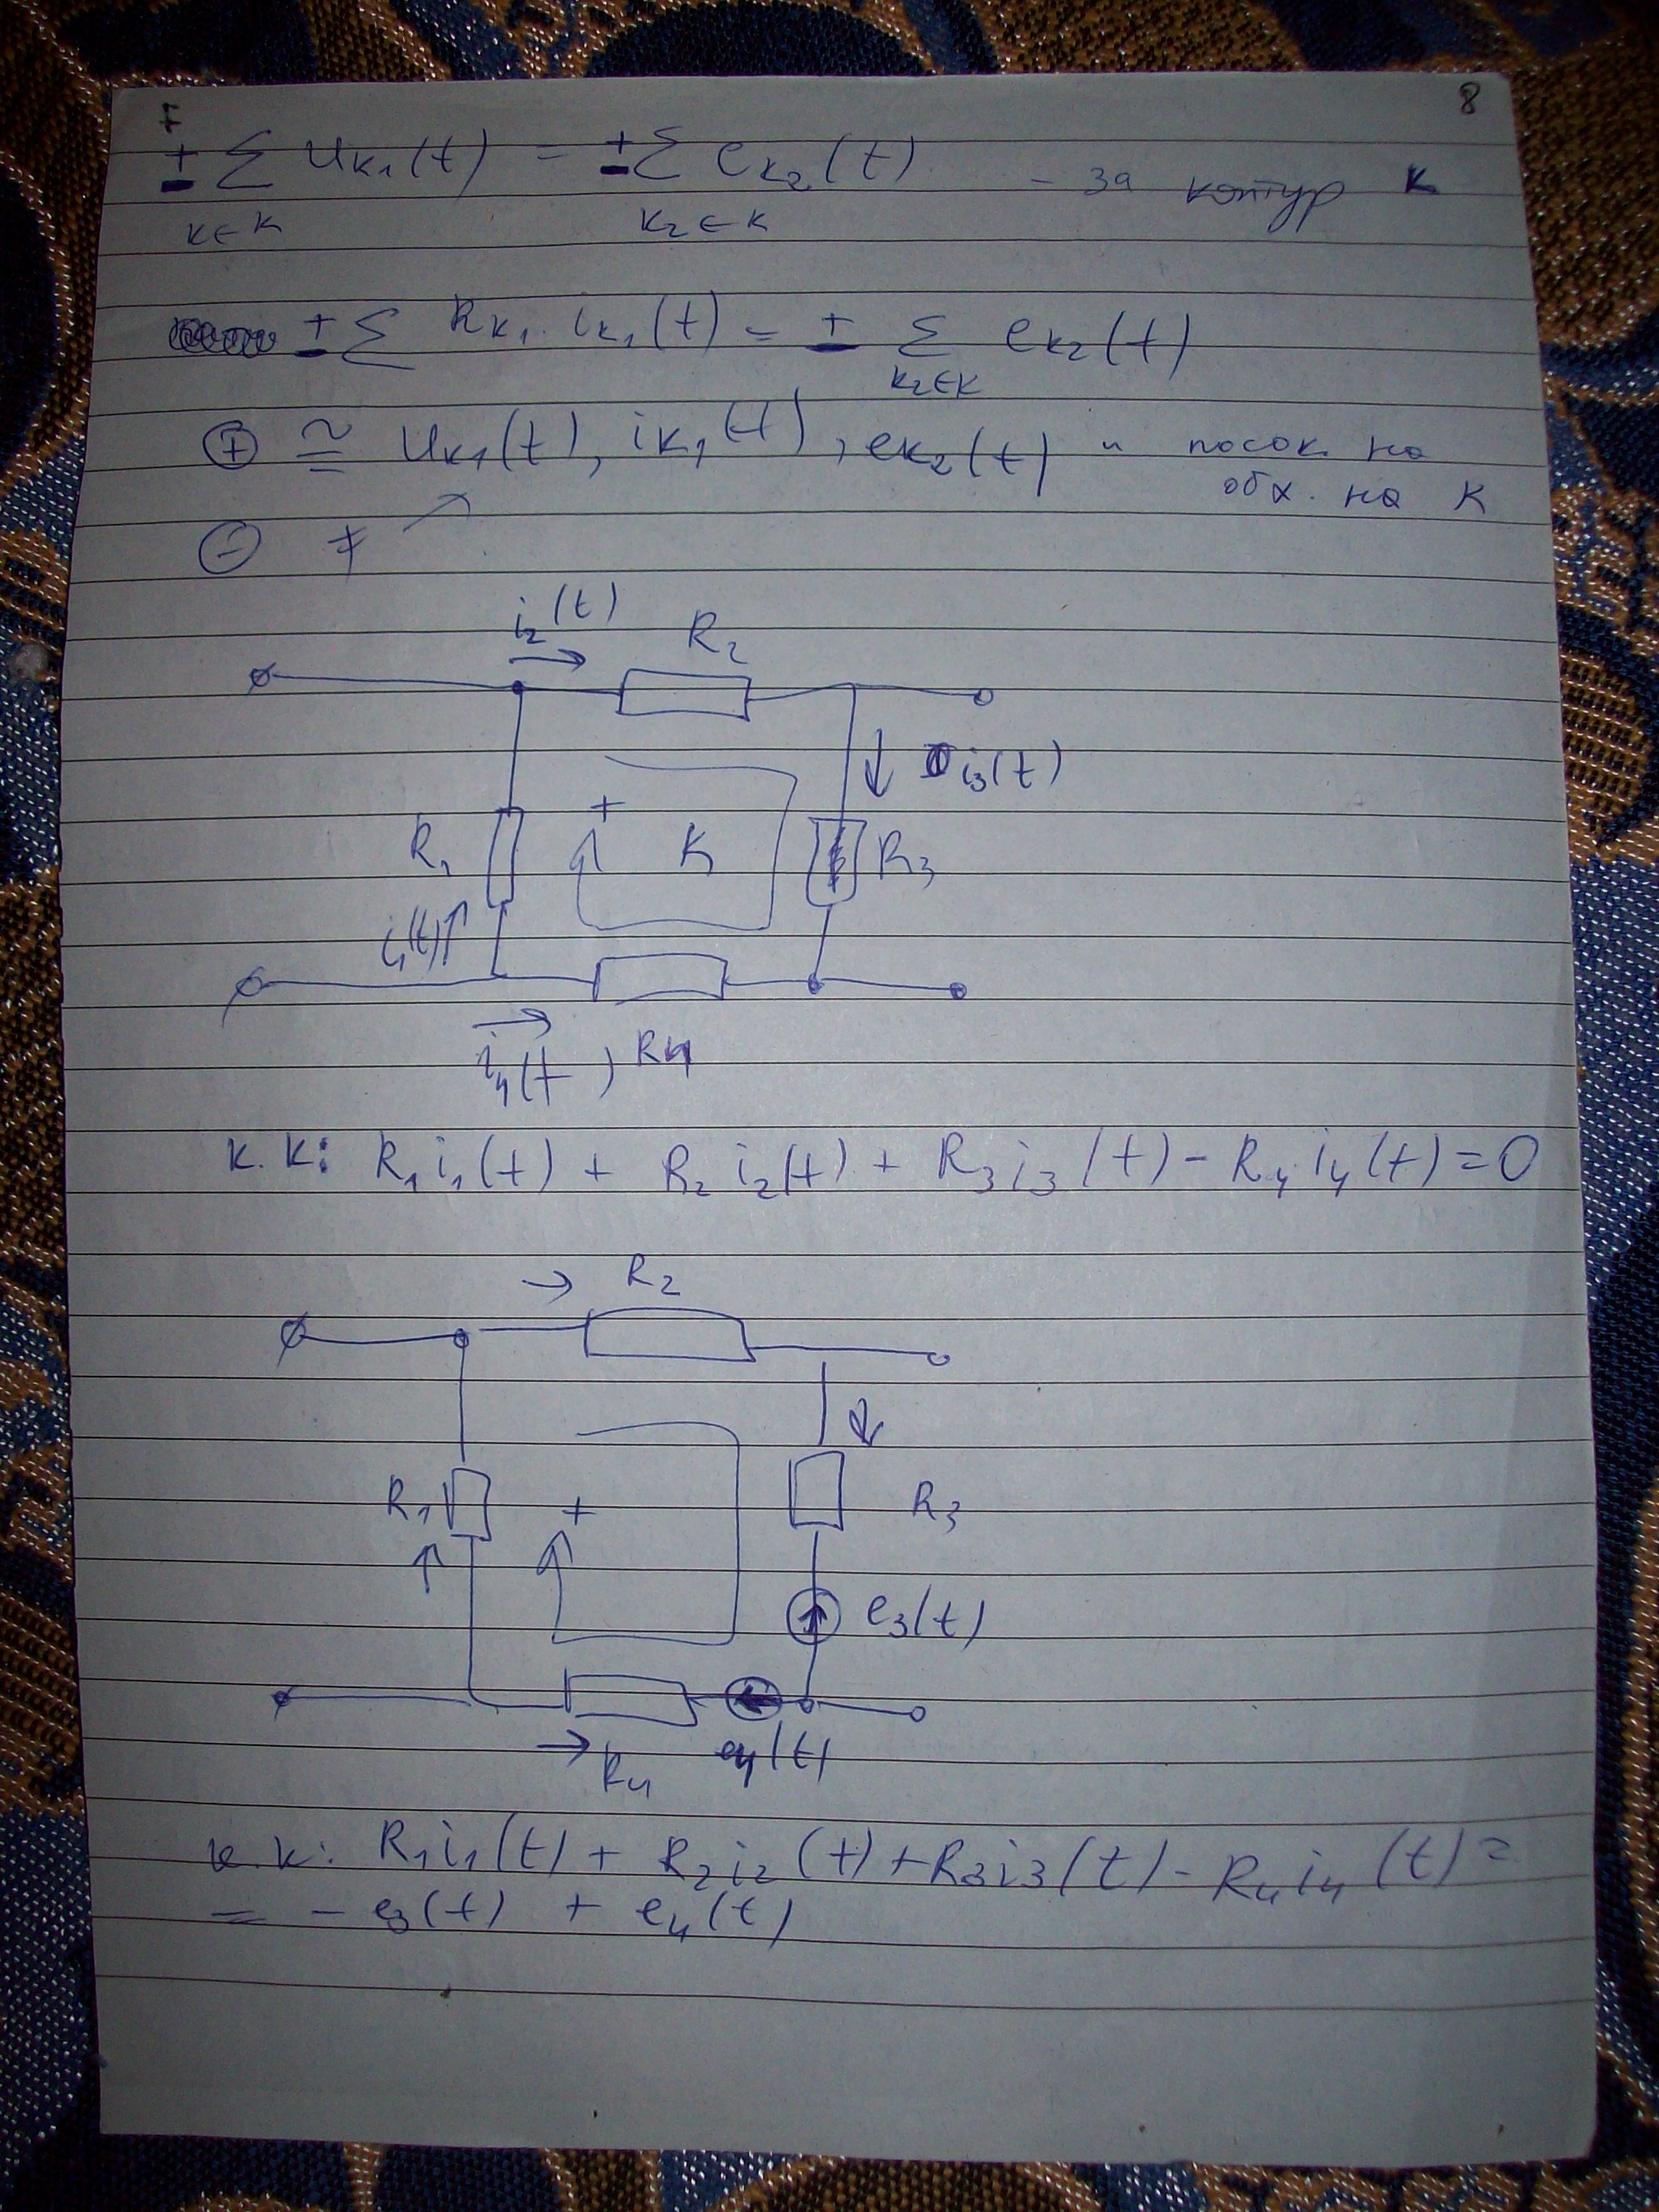 8
± Σ u_k₁(t) = ± Σ e_k₂(t) - за контур K
k∈K k₂∈K
± Σ R_k₁ . i_k₁(t) = ± Σ e_k₂(t)
k₂∈K
⊕ ≅ u_k₁(t), i_k₁(t), e_k₂(t) и посок. на
обх. на K
⊖ ≠ ↗
i₂(t) R₂
i₃(t)
+
R₁ K R₃
i₁(t)
i₄(t) R₄
к. K: R₁ i₁(t) + R₂ i₂(t) + R₃ i₃(t) - R₄ i₄(t) = 0
R₂
R₁ + R₃
e₃(t)
R₄ e₄(t)
к. K: R₁i₁(t) + R₂i₂(t) + R₃i₃(t) - R₄i₄(t) =
= - e₃(t) + e₄(t)